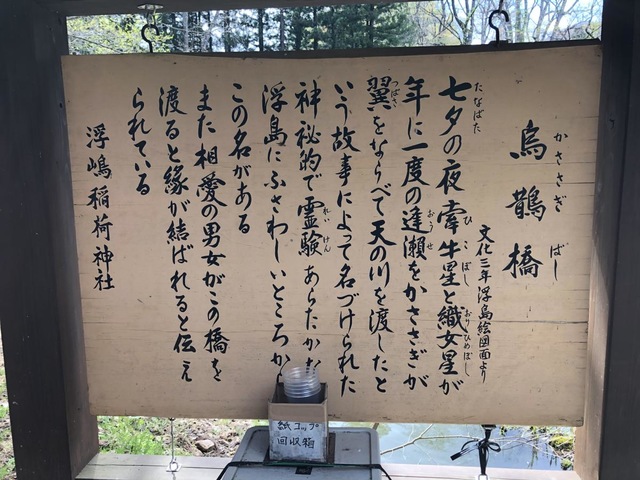 烏鵲橋
かささぎばし
文化三年浮島絵図面より
七夕の夜牽牛星と織女星が
たなばた
ひこぼし
おりひめぼし
年に一度の逢瀬をかささぎが
おうせ
翼をならべて天の川を渡したと
つばさ
いう故事によって名づけられた
神秘的で霊験あらたかな
れいけん
浮島にふさわしいところか
この名がある
また相愛の男女がこの橋を
渡ると縁が結ばれると伝え
られている
浮嶋稲荷神社
紙コップ
回収箱